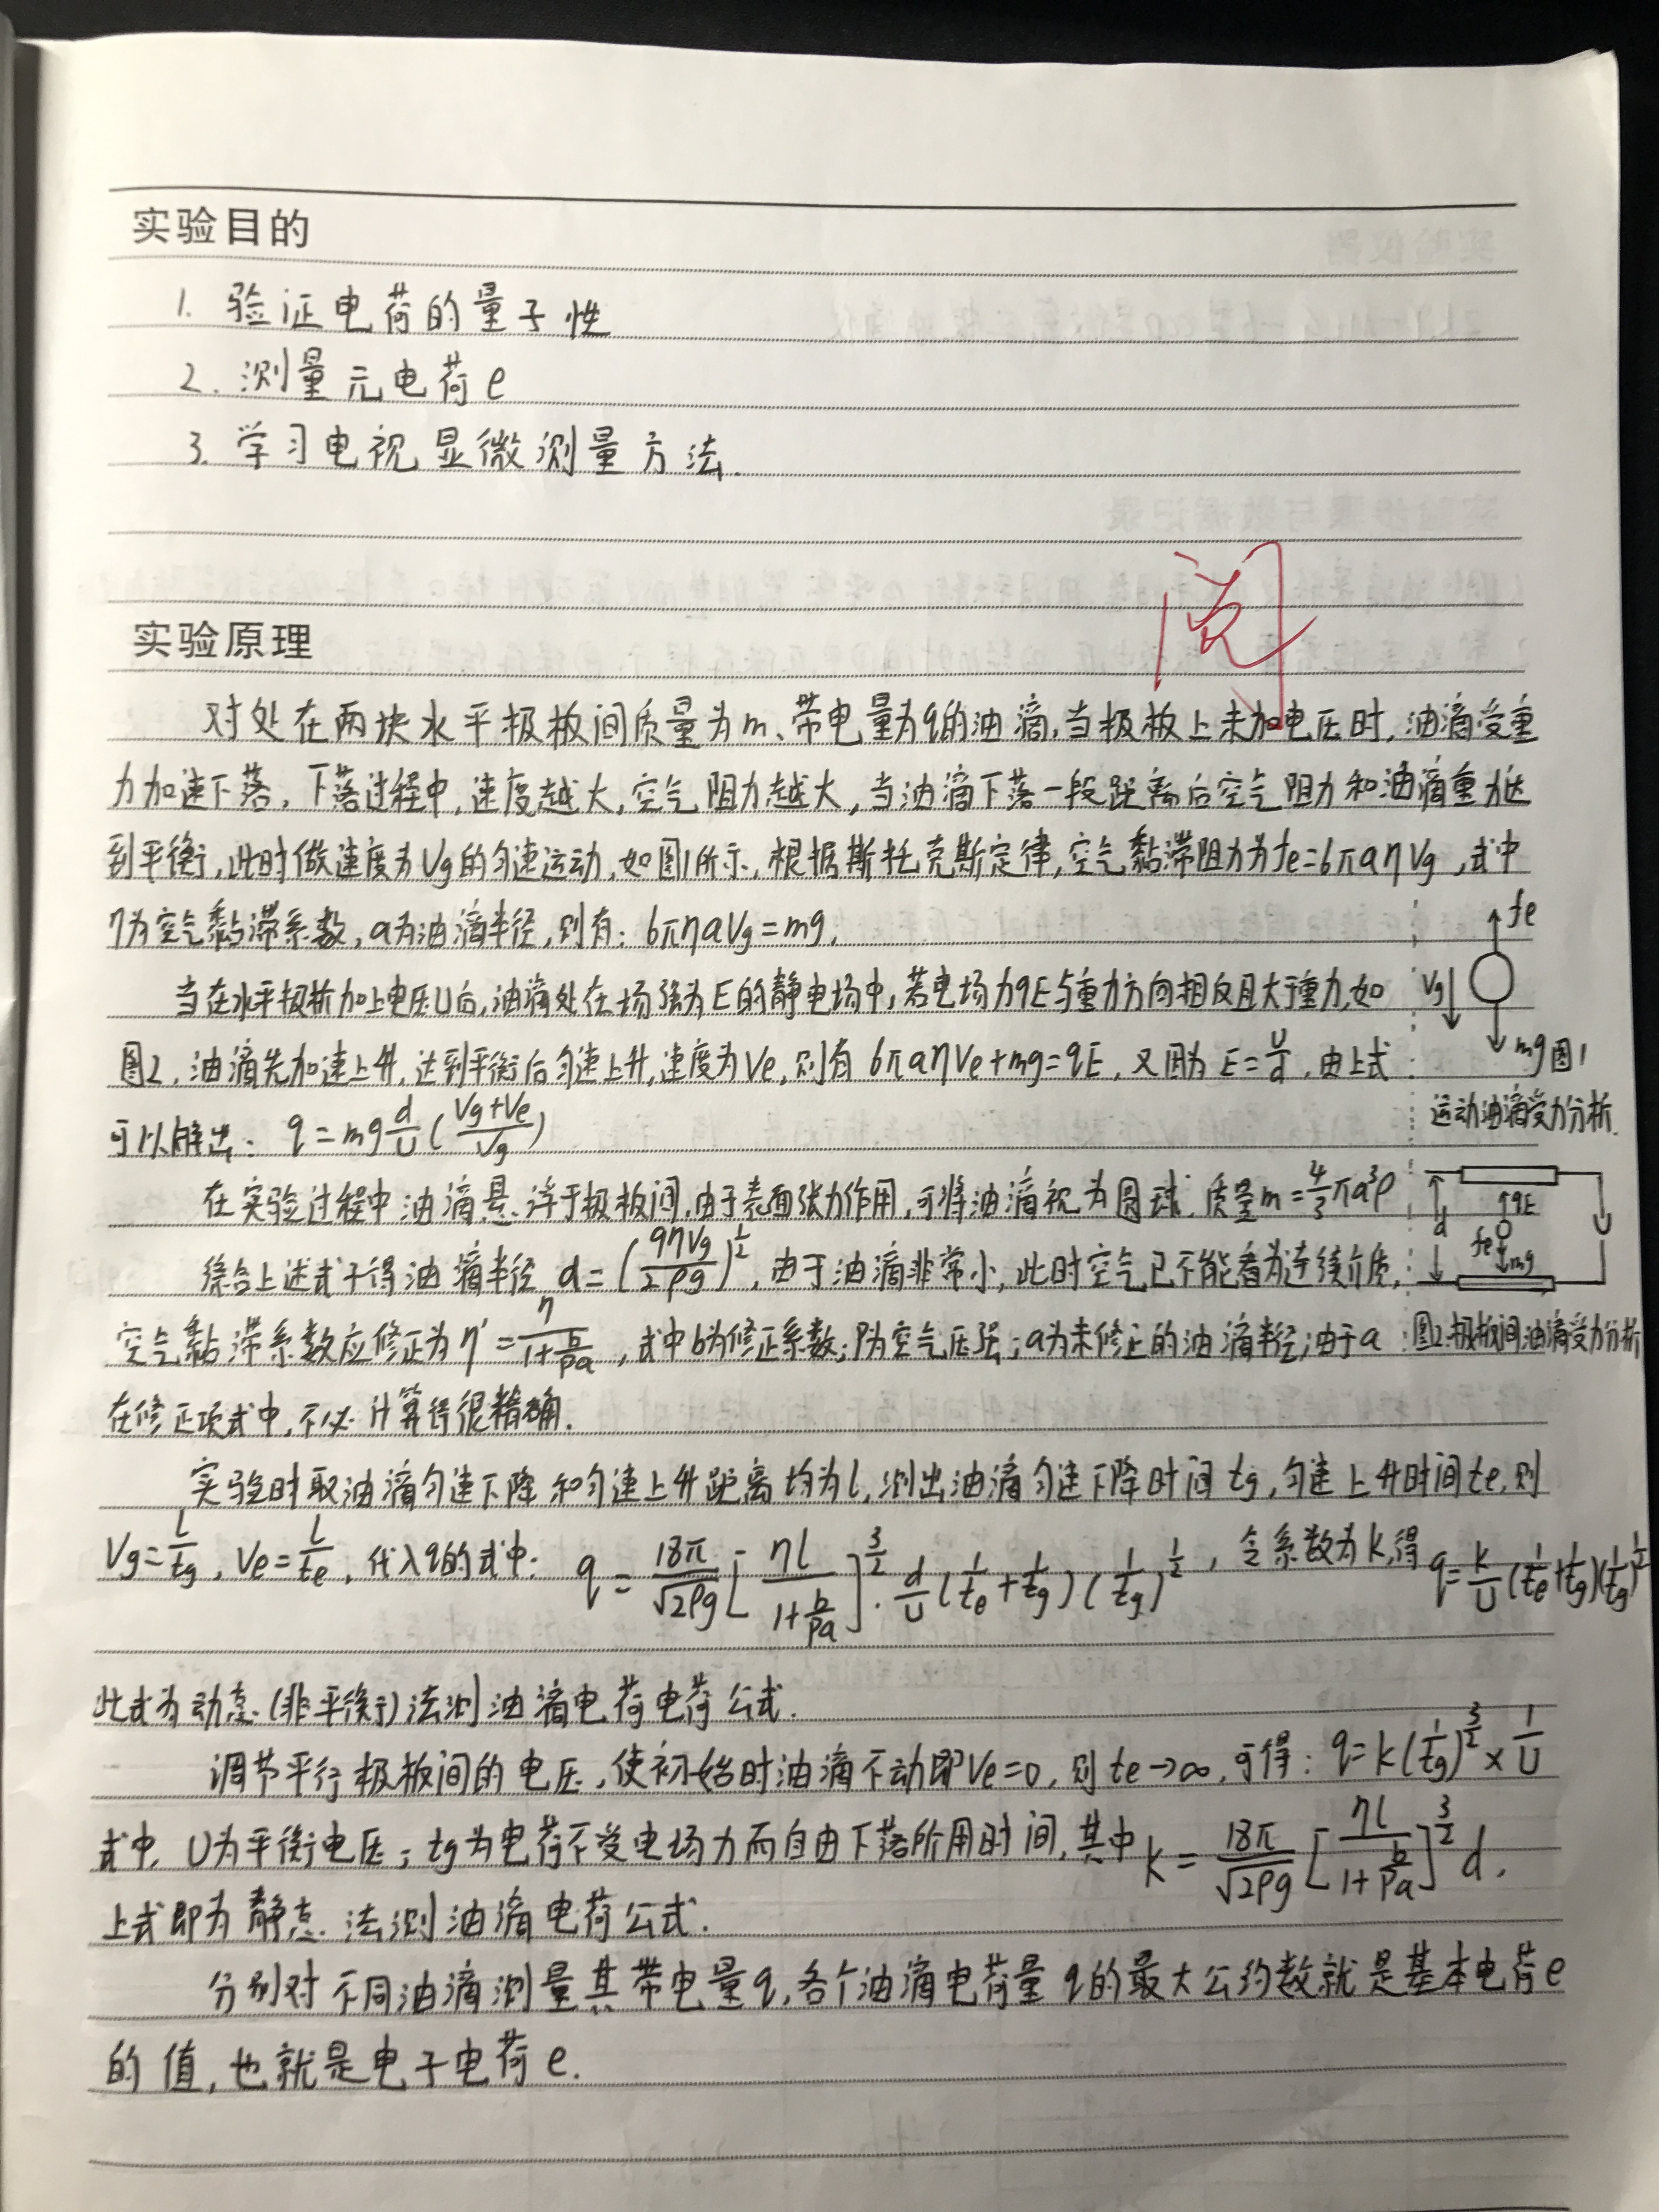 实验目的
1. 验证电荷的量子性
2. 测量元电荷e
3. 学习电视显微测量方法.
阅
实验原理
对处在两块水平极板间质量为m、带电量为q的油滴,当极板上未加电压时,油滴受重
力加速下落,下落过程中,速度越大,空气阻力越大,当油滴下落一段距离后空气阻力和油滴重力达
到平衡,此时做速度为Vg的匀速运动,如图1所示,根据斯托克斯定律,空气黏滞阻力为fe=6πaηVg,式中
η为空气黏滞系数,a为油滴半径,则有: 6πηaVg=mg,
当在水平极板加上电压U后,油滴处在场强为E的静电场中,若电场力qE与重力方向相反且大于重力,如
图2,油滴先加速上升,达到平衡后匀速上升,速度为Ve,则有 6πaηVe+mg=qE,又因为 E=U/d,由上式
可以解出: q=mg d/U (Vg+Ve/Vg)
fe
Vg
mg 图1
运动油滴受力分析.
在实验过程中油滴悬浮于极板间,由于表面张力作用,可将油滴视为圆球,质量m=4/3 πa³ρ
综合上述式子得油滴半径 d=(9ηVg/2ρg)^1/2,由于油滴非常小,此时空气已不能看为连续介质,
空气黏滞系数应修正为η'=η/(1+b/pa),式中b为修正系数;P为空气压强;a为未修正的油滴半径;由于a
在修正项式中,不必计算得很精确.
d
qE
fe
mg
U
图2.极板间油滴受力分析
实验时取油滴匀速下降和匀速上升距离均为l,测出油滴匀速下降时间tg,匀速上升时间te,则
Vg=l/tg, Ve=l/te,代入q的式中: q=18π/√2ρg [ηl/(1+b/pa)]^3/2 · d/U (1/te+1/tg)(1/tg)^1/2,令系数为k,得 q=k/U(1/te+1/tg)(1/tg)^1/2
此式为动态(非平衡)法测油滴电荷电荷公式.
调节平行极板间的电压,使初始时油滴不动即Ve=0,则te→∞,可得: q=k(1/tg)^3/2 × 1/U
式中,U为平衡电压;tg为电荷不受电场力而自由下落所用时间,其中 k=18π/√2ρg [ηl/(1+b/pa)]^3/2 d.
上式即为静态法测油滴电荷公式.
分别对不同油滴测量其带电量q,各个油滴电荷量q的最大公约数就是基本电荷e
的值,也就是电子电荷e.